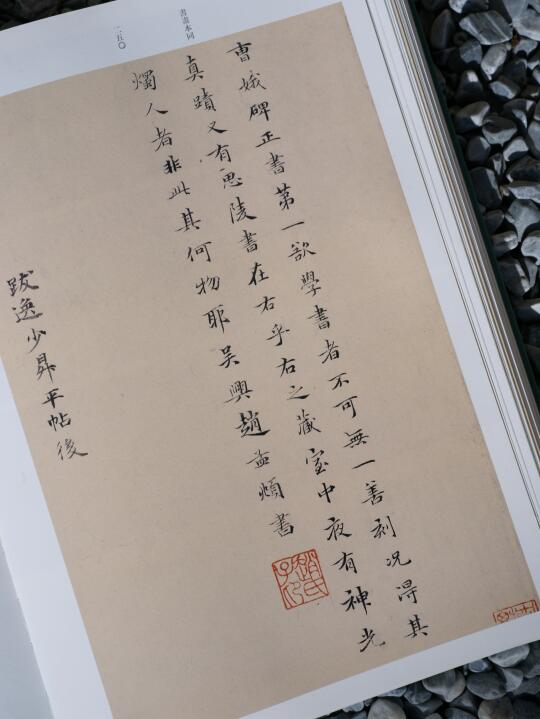 書畫本同
一五〇
曹娥碑正書第一欲學書者不可無一善刻況得其
真蹟又有思陵書在右乎右之藏室中夜有神光
燭人者非此其何物耶吳興趙孟頫書
趙氏子昂
跋逸少昇平帖後